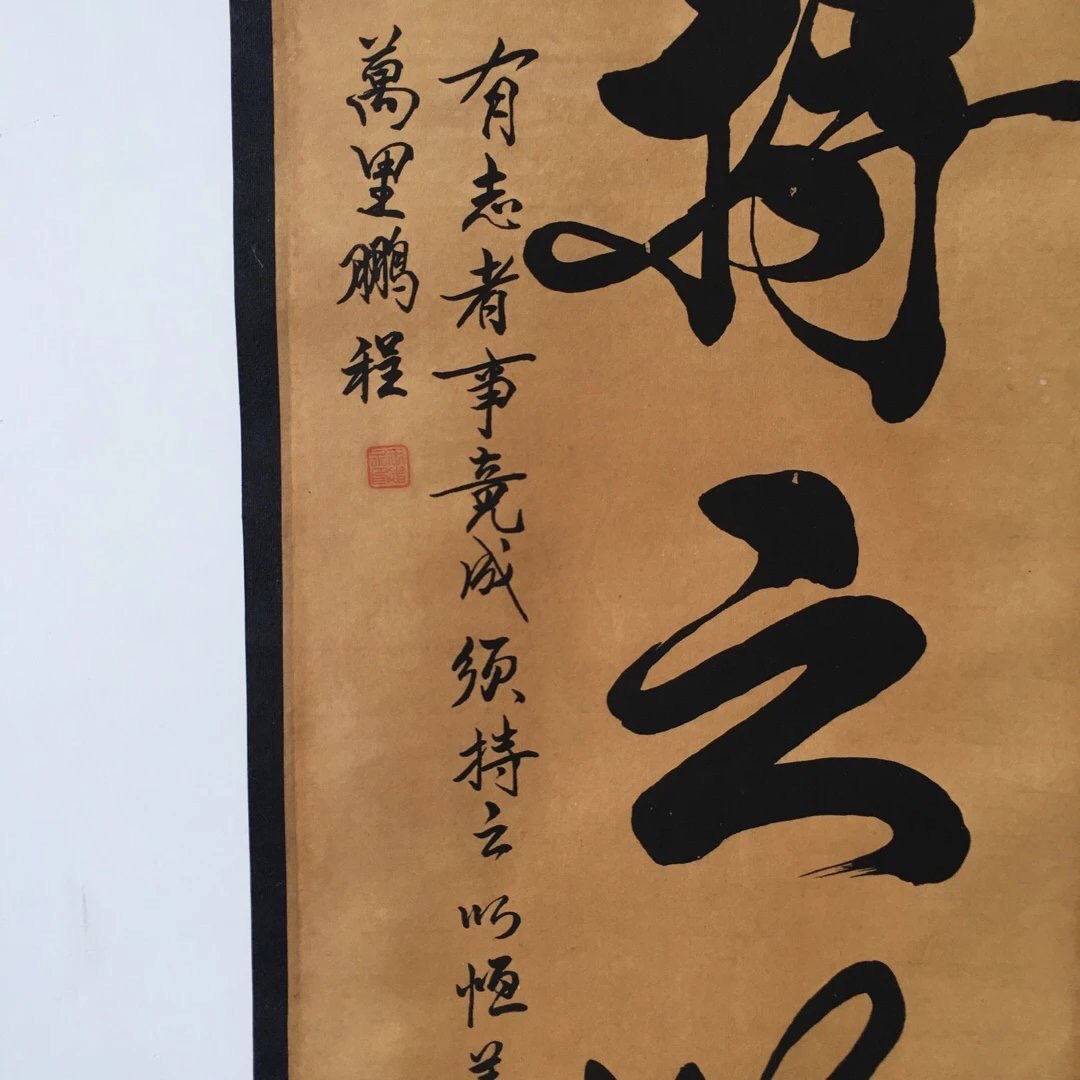 持之以
有志者事竟成须持之以恒
萬里鵬程